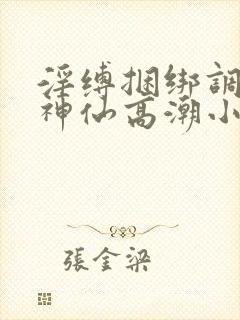 淫缚捆绑調
神仙高潮小
張金梁